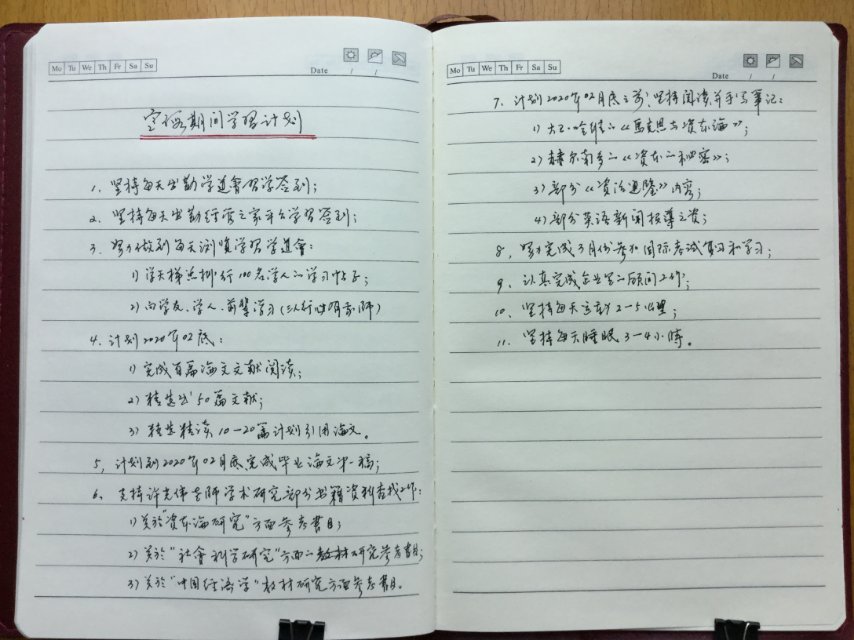 Mo Tu We Th Fr Sa Su
Date / /
空暇期间学習计划
1. 坚持每天出勤学道會習学签到;
2. 坚持每天出勤经管之家平台学習签到;
3. 努力做到每天浏覧学習学道會:
1) 学天梯点排行100名学人的学习帖子;
2) 向学友、学人、前辈学习(三人行必有吾师)
4. 计划2020年02底:
1) 完成百篇论文文献阅读;
2) 精选出50篇文献;
3) 精选精读10-20篇计划引用论文。
5. 计划到2020年02月底完成毕业论文第一稿;
6. 支持许光伟老师学术研究部分书籍资料查找工作:
1) 关於"资本论研究"方面参考書目;
2) 关於"社會科学研究"方面的教材研究参考書目;
3) 关於"中国经济学"教材研究方面参考書目。
Mo Tu We Th Fr Sa Su
Date / /
7. 计划2020年02月底之前,坚持阅读并手写笔记:
1) 大卫·哈维的《馬克思与资本論》;
2) 赫尔南多的《资本的秘密》;
3) 部分《资治通鉴》内容;
4) 部分英语新闻报導之资;
8. 努力完成3月份参加国际考試复习和学习;
9. 认真完成企业第一顾问工作;
10. 坚持每天运动2-5公里;
11. 坚持每天睡眠3-4小時。